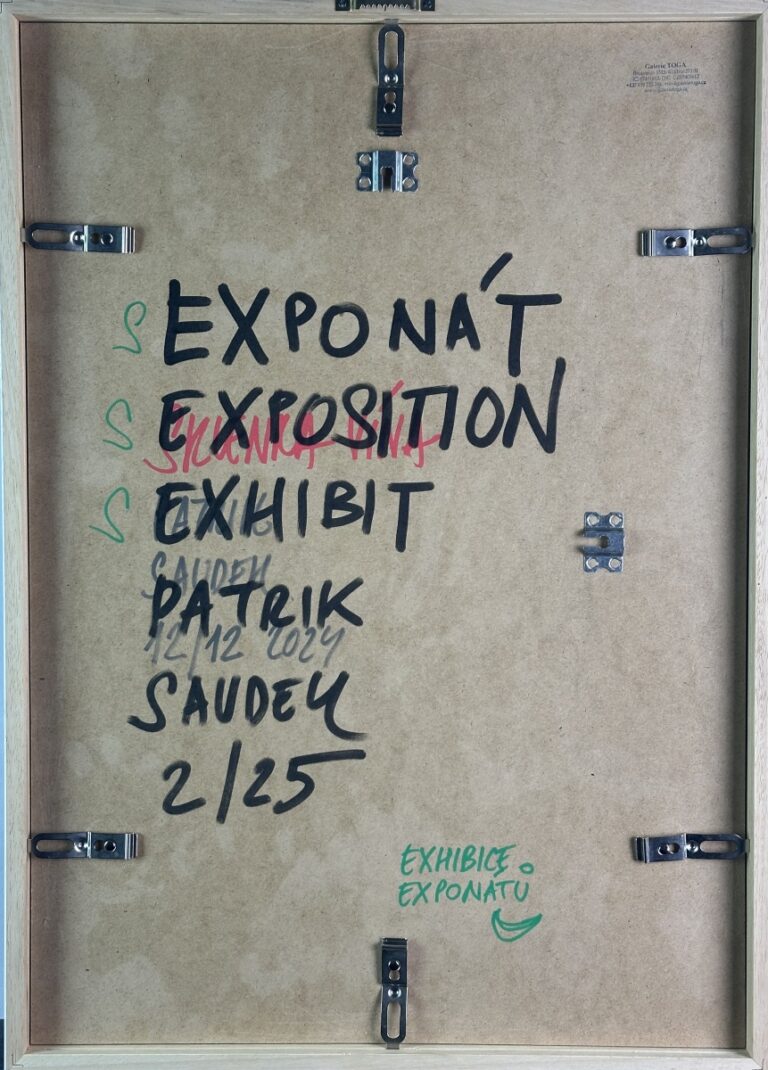 Galerie TOGA
EXPONÁT
EXPOSITION
SKLENKA VÍNA
EXHIBIT
PATRIK
SAUDEK
PATRIK
12/12 2024
SAUDEK
2/25
EXHIBICE
EXPONATŮ